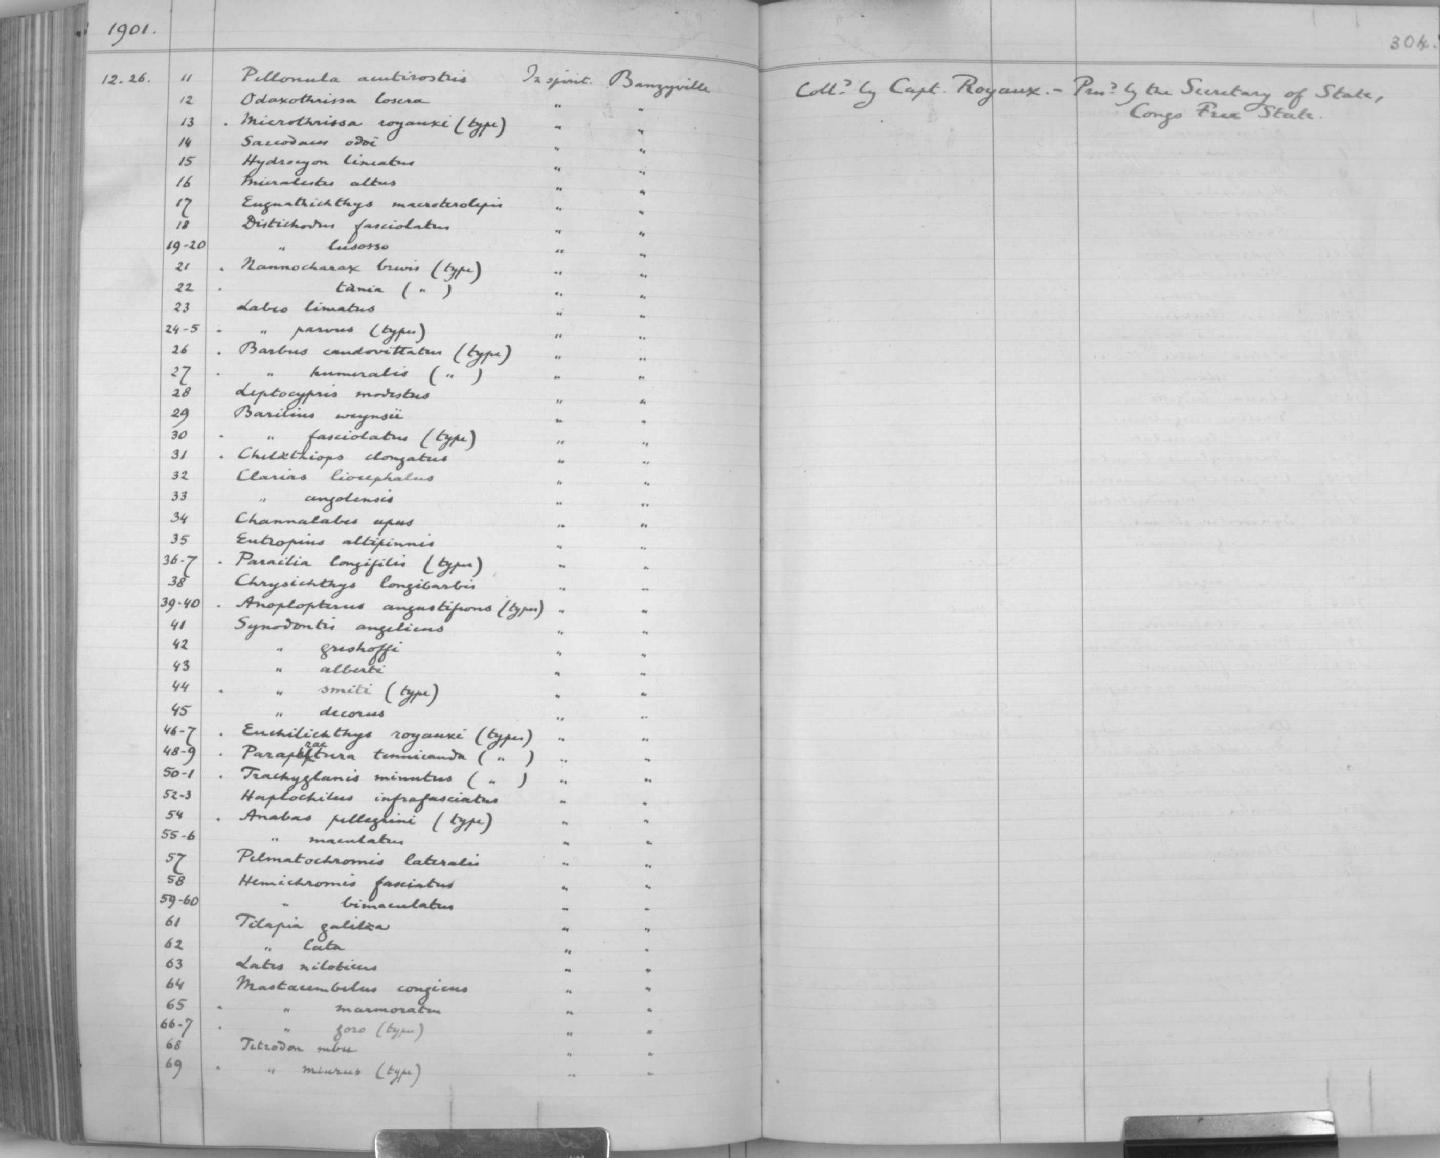 1901.
304.
12.26. 11 Pellonula acutirostris In spirit. Banzyville Coll.d by Capt. Royaux. - Pres.d by the Secretary of State,
Congo Free State.
12 Odaxothrissa losera " "
13 . Microthrissa royauxi (type) " "
14 Saccodon odoë " "
15 Hydrocyon lineatus " "
16 Micralestes altus " "
17 Eugnathichthys macroterolepis " "
18 Distichodus fasciolatus " "
19-20 " lusosso " "
21 . Nannocharax brevis (type) " "
22 . tænia ( " ) " "
23 Labeo lineatus " "
24-5 . " parvus (types) " "
26 . Barbus caudovittatus (type) " "
27 . " humeralis ( " ) " "
28 Leptocypris modestus " "
29 Barilius weynsii " "
30 . " fasciolatus (type) " "
31 . Chelæthiops elongatus " "
32 Clarias liocephalus " "
33 " angolensis " "
34 Channalabes apus " "
35 Eutropius altipinnis " "
36-7 . Parailia longifilis (types) " "
38 Chrysichthys longibarbis " "
39-40 . Anoplopterus angustifrons (types) " "
41 Synodontis angelicus " "
42 " greshoffi " "
43 " alberti " "
44 . " smiti (type) " "
45 " decorus " "
46-7 . Euchilichthys royauxi (types) " "
48-9 . Paraphractura tenuicauda ( " ) " "
50-1 . Trachyglanis minutus ( " ) " "
52-3 Haplochilus infrafasciatus " "
54 . Anabas pellegrini (type) " "
55-6 " maculatus " "
57 Pelmatochromis lateralis " "
58 Hemichromis fasciatus " "
59-60 " bimaculatus " "
61 Tilapia galilæa " "
62 " lata " "
63 Lates niloticus " "
64 Mastacembelus congicus " "
65 . " marmoratus " "
66-7 . " goro (types) " "
68 Tetrodon mbu " "
69 . " miurus (type) " "